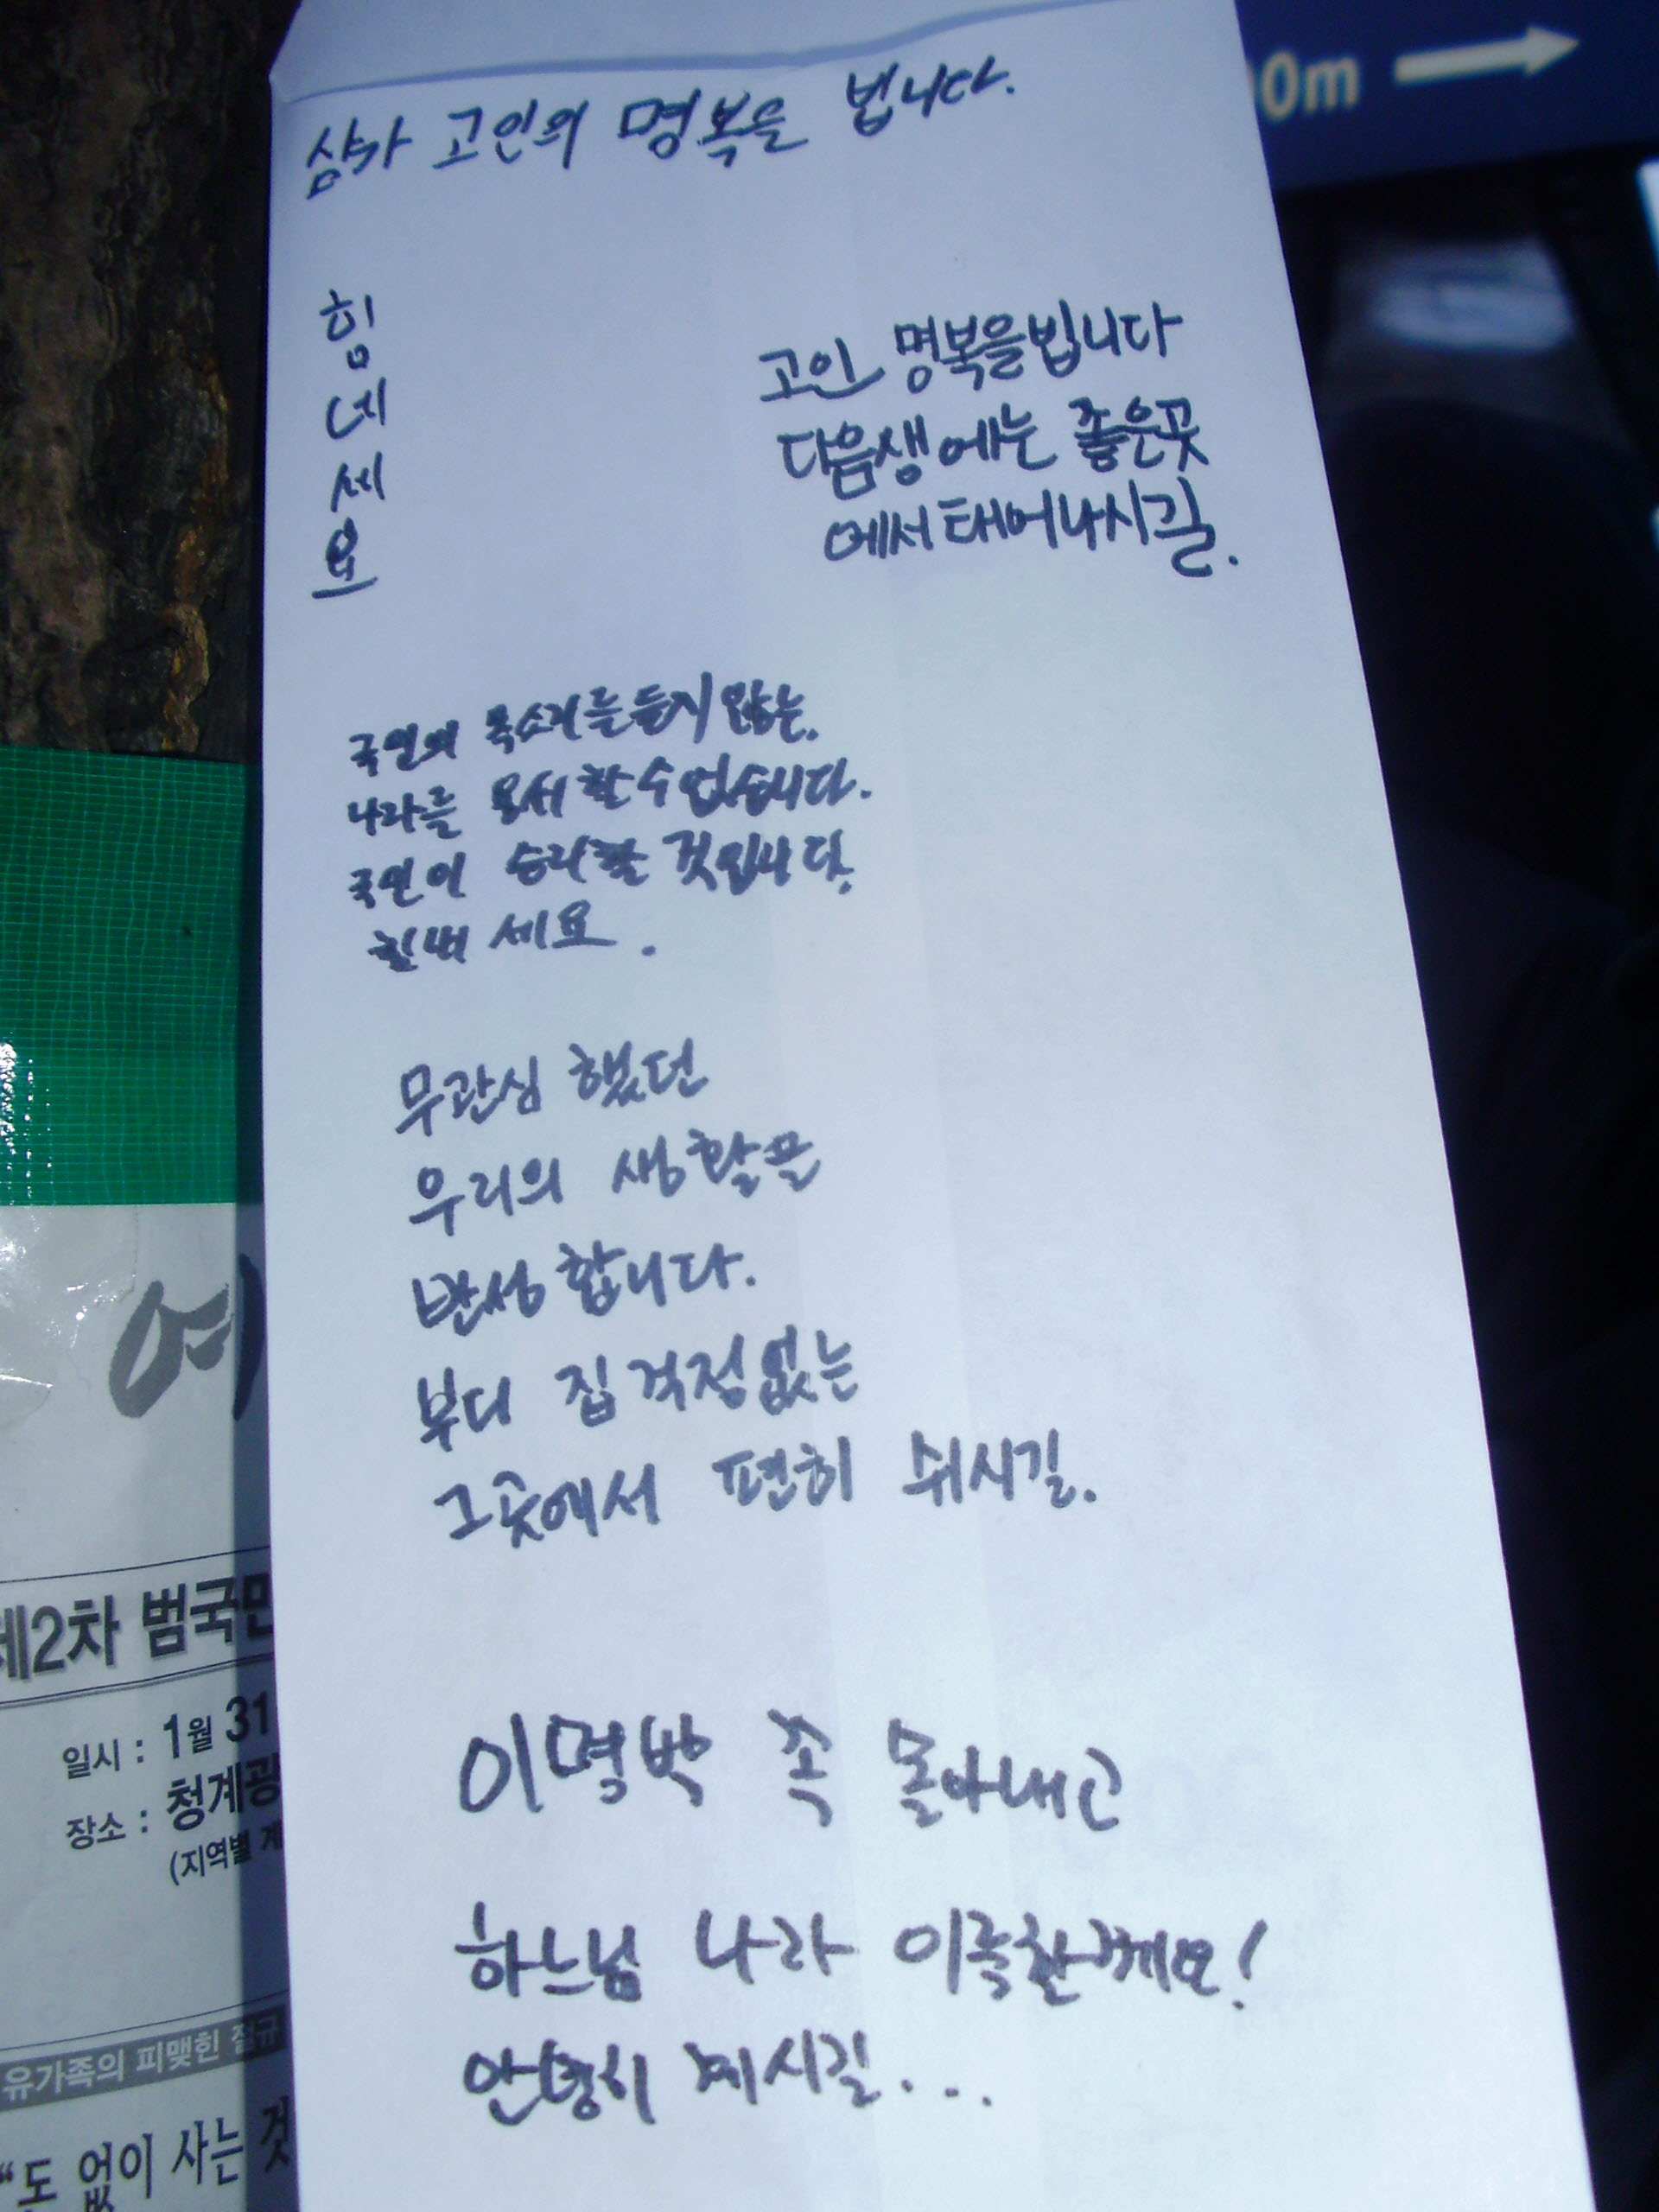 삼가 고인의 명복을 빕니다.
0m
힘
네
세
요
고인 명복을빕니다
다음생에는 좋은곳
에서태어나시길.
국민의 목소리를듣지 않는.
나라를 용서할수없습니다.
국민이 승리할 것입니다.
힘내세요.
무관심 했던
우리의 생활을
반성합니다.
부디 집 걱정없는
그곳에서 편히 쉬시길.
이명박 꼭 몰아내고
하느님 나라 이룩할께요!
안녕히 계시길...
제2차 범국민
일시 : 1월 31
장소 : 청계광
(지역별
유가족의 피맺힌 절규
"도 없이 사는 것